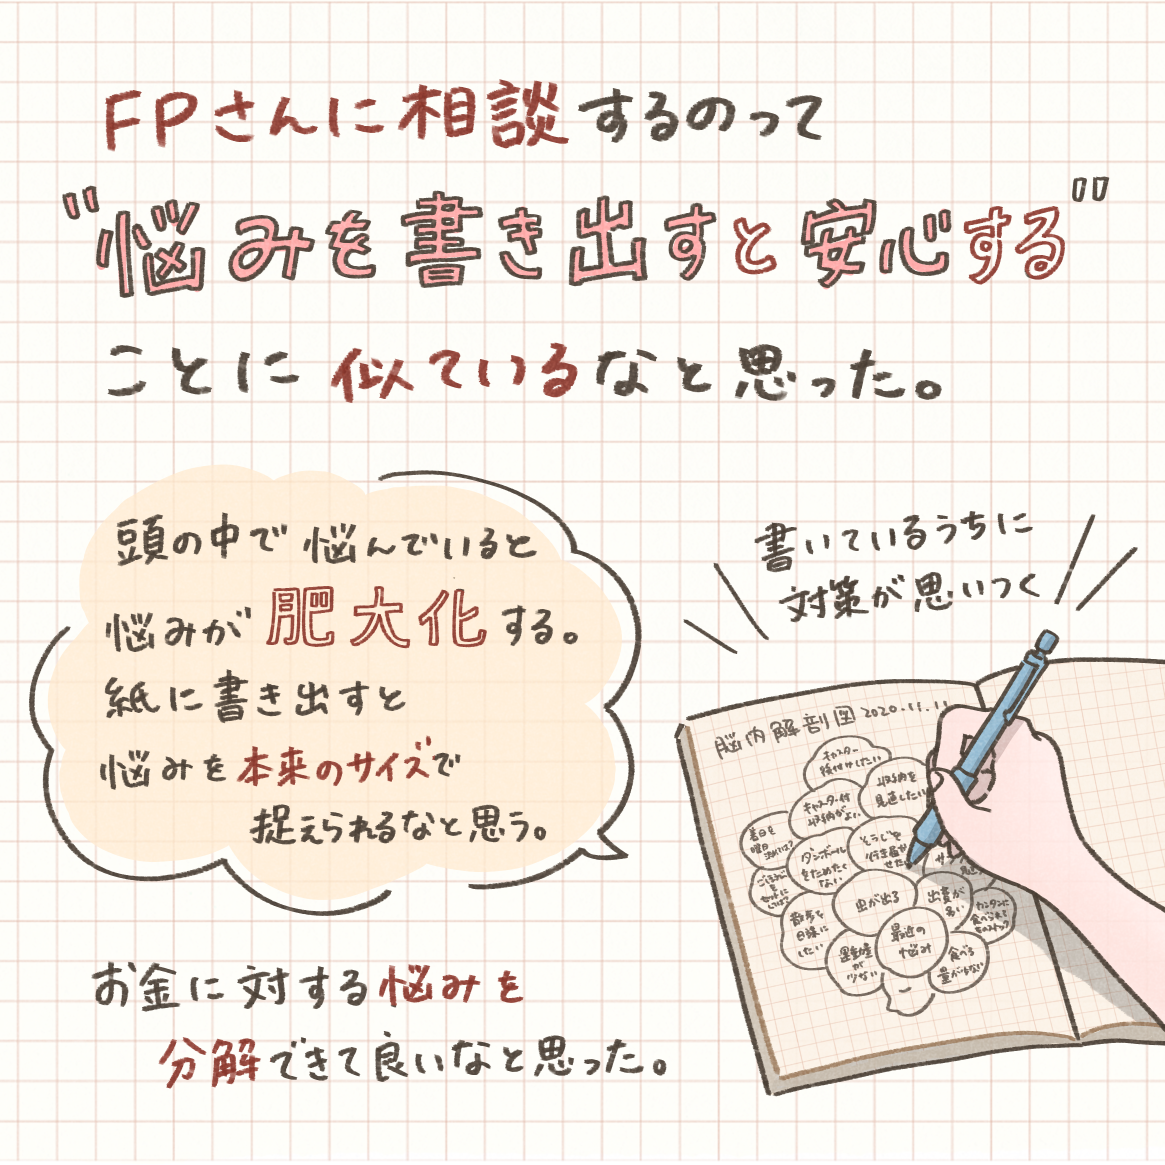 FPさんに相談するのって
"悩みを書き出すと安心する"
ことに似ているなと思った。
頭の中で悩んでいると
悩みが肥大化する。
紙に書き出すと
悩みを本来のサイズで
捉えられるなと思う。
書いているうちに
対策が思いつく
脳内解剖図 2020.11.11
キャスター
後付けしたい
収納を
見直したい
キャスター付
収納がよい
着日を
曜日
ダンボール
をためたく
ない
そうじを
虫が出る
出費が
多い
カンタンに
食べられる
散歩を
日課に
したい
最近の
悩み
運動量
が
少ない
食べる
お金に対する悩みを
分解できて良いなと思った。